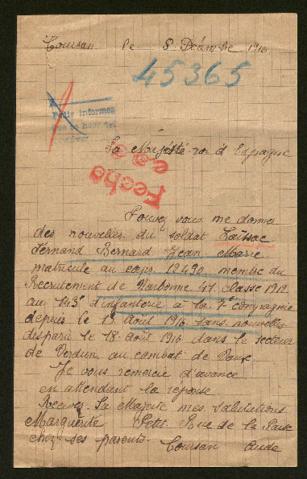 Coursan le 8 Décembre 1916
45365
Fecha
Sa Majesté roi d'Espagne
Pouvez vous me donner
des nouvelles du soldat Laissac
Fernand Bernard Jean Marie
matricule au corps 12490 du
Recrutement de Narbonne classe 1912
au 143e d'infanterie à la 7e compagnie
depuis le août 1916 sans nouvelles
disparu le 18 août 1916 dans le secteur
de Verdun au combat de Vaux
Je vous remercie d'avance
en attendant la reponse
Recevez Sa Majesté mes salutations
Marguerite Petit Rue de la Paix
chez ses parents Coursan Aude